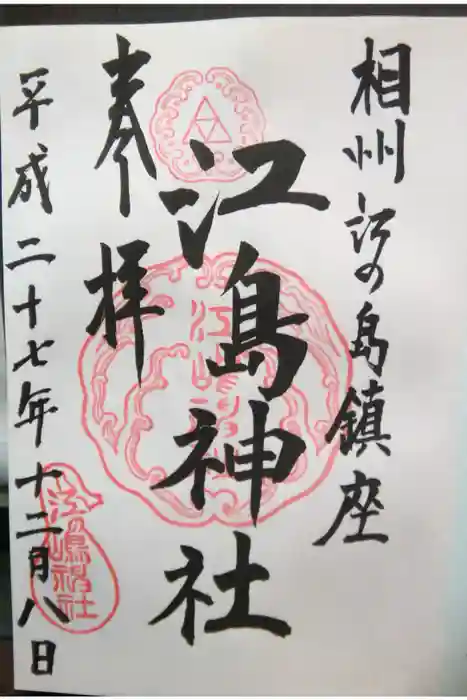 相州江の島鎮座
江島神社
奉拝
平成二十七年十二月八日
江嶋神社
江嶋神社